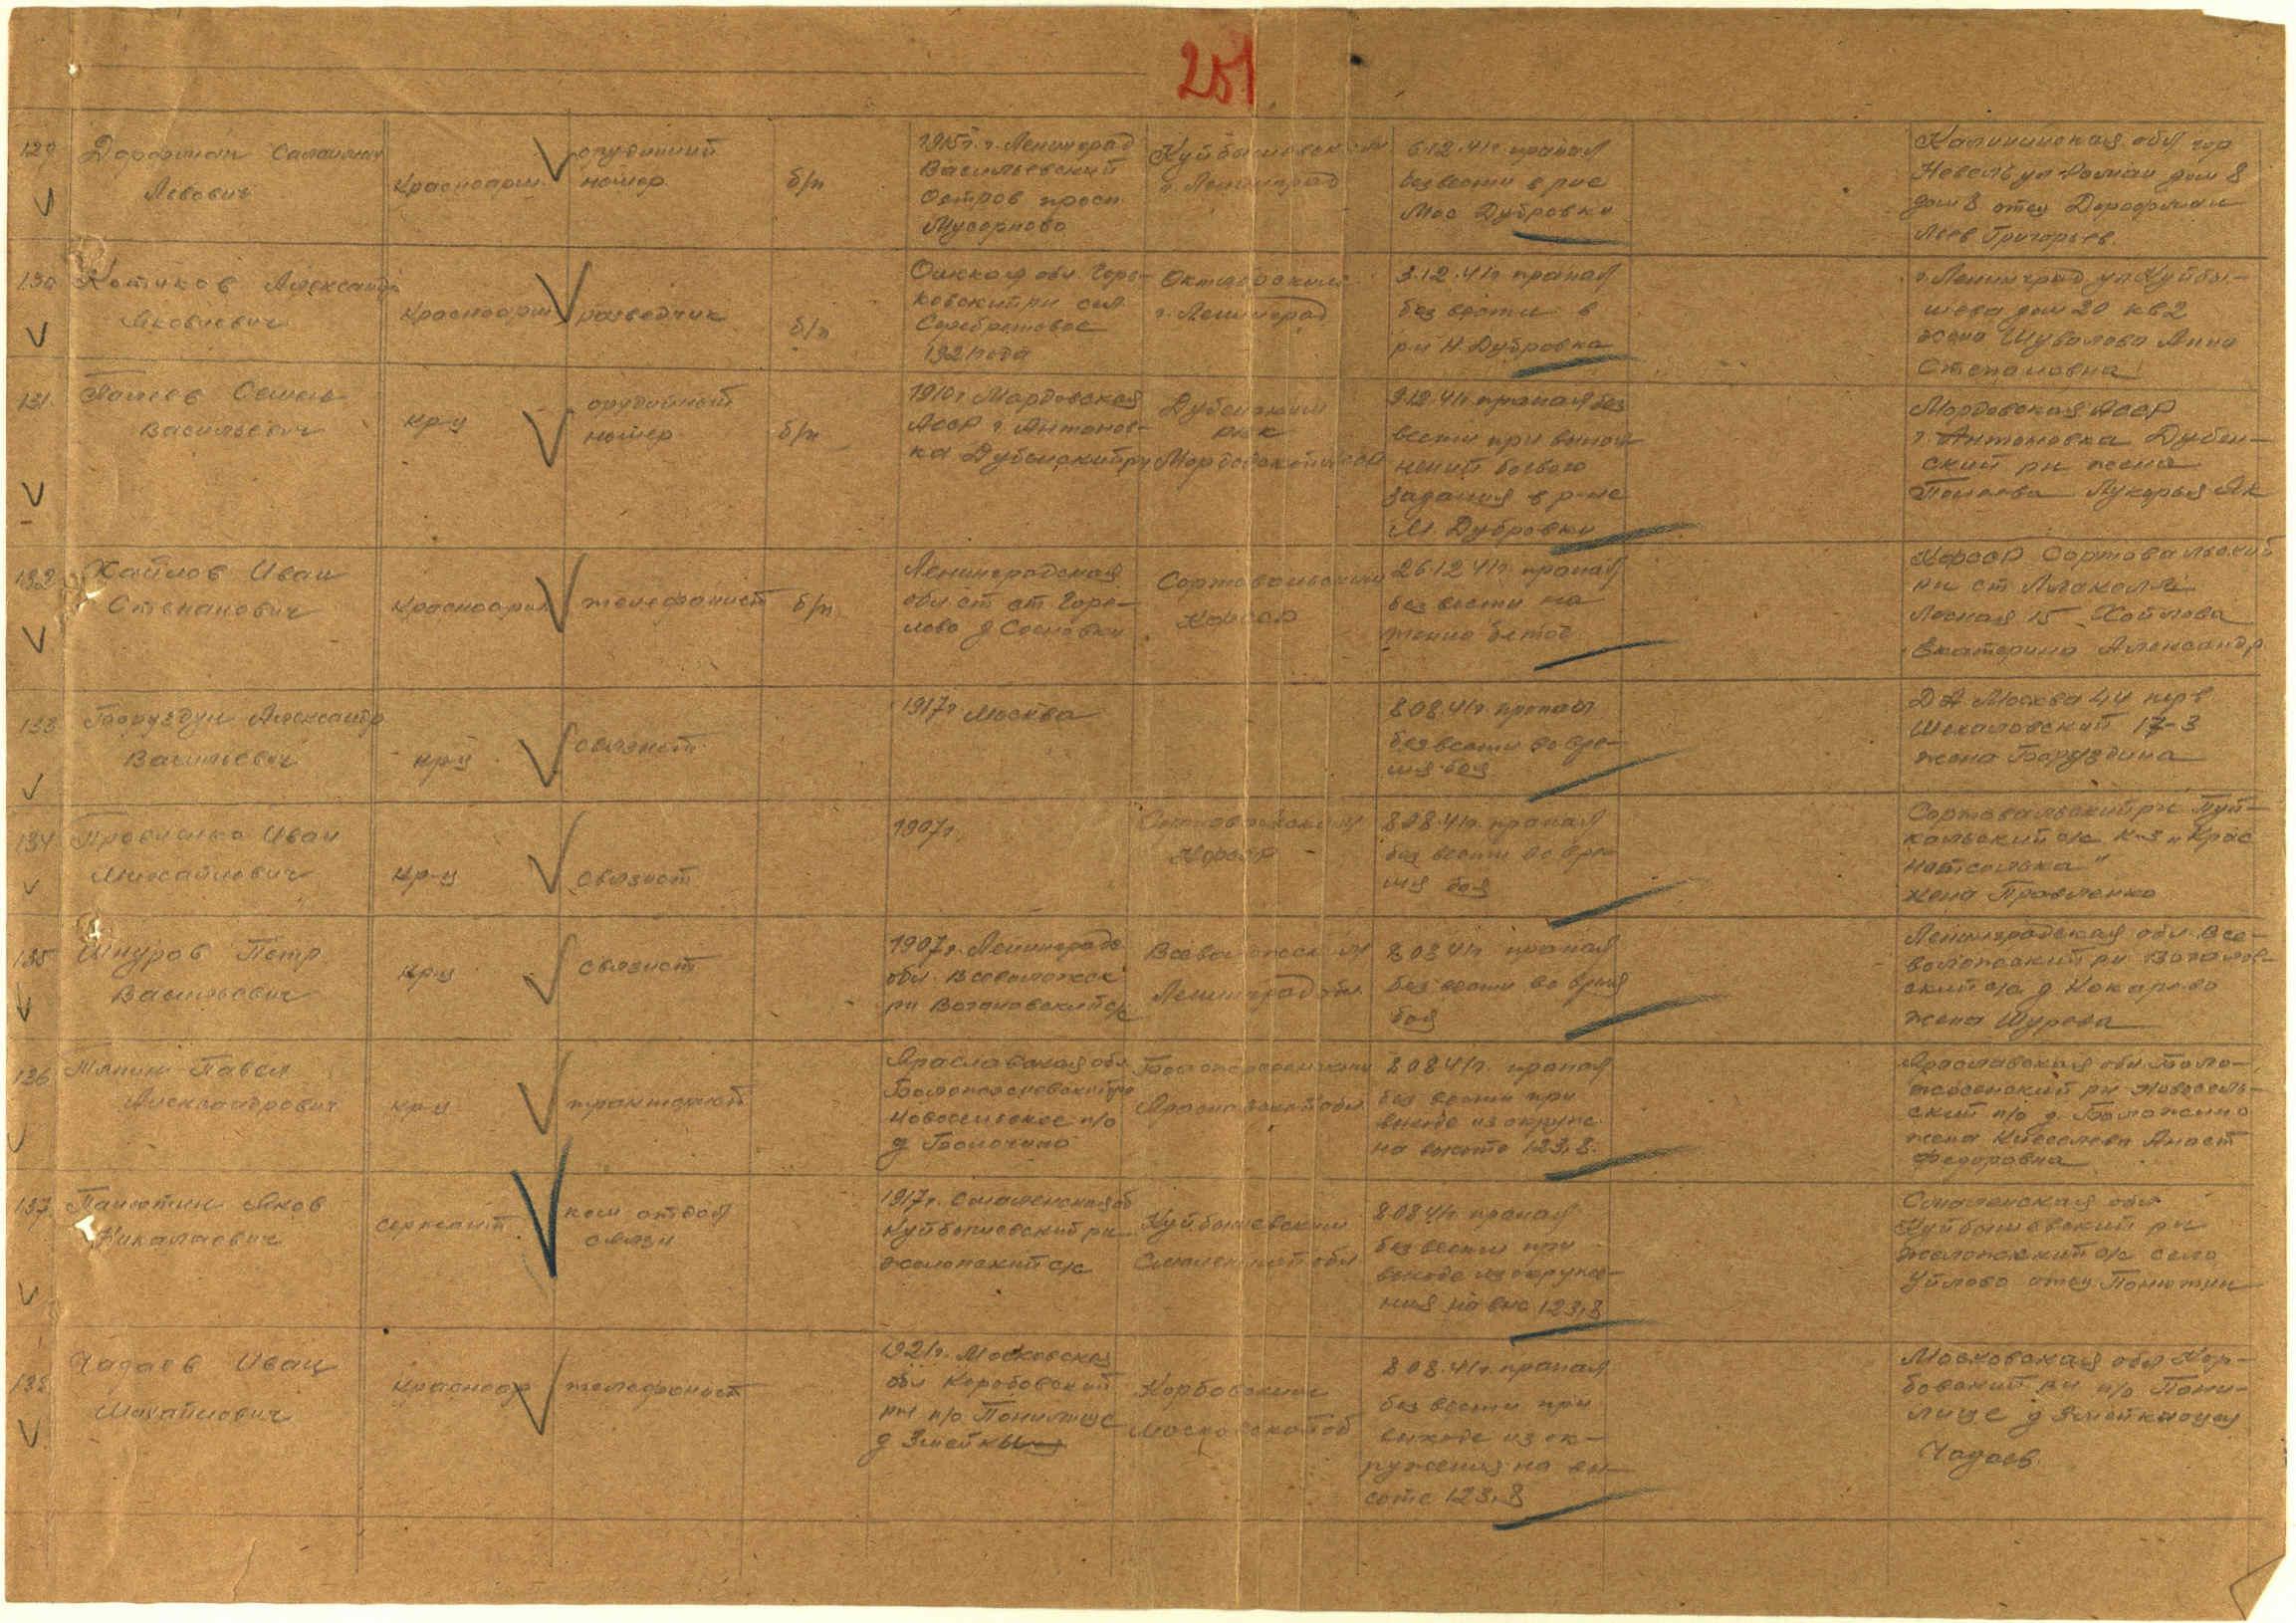 251
129
Дорфман Саломон
Левович
Красноарм.
орудийный
номер
б/п
1915 г. г. Ленинград
Васильевский
Остров просп
Мусоргского
Куйбышевский
г. Ленинград
6.12.41г. пропал
без вести в рне
Мос Дубровки
Калининская обл гор
Невель ул дом 8
дом 8 отец Дорфман
Лев Григорьев.
130
Котиков Александр
Яковлевич
Красноарм
разведчик
б/п
Омская обл. Горь-
ковский рн сел
1921 года
Октябрский
г. Ленинград
3.12.41г. пропал
без вести в
р-н Н. Дубровка
г. Ленинград ул Куйбы-
шева дом 20 кв 2
жена Шувалова Анна
Степановна
131.
Семен
Васильевич
кр-ц
орудийный
номер
б/п
1910г Мордовская
АССР г. Антонов-
ка Дубенский рн
Дубенским
рвк
Мордовской АССР
9.12.41г. пропал без
вести при выпол
нений боевого
задания в р-не
М. Дубровки
Мордовская АССР
г. Антоновка Дубен-
ский рн жена
Лукерья Як
132
Хайлов Иван
Степанович
Красноарм.
телефонист
б/п
Ленинградская
обл ст ст Горе-
лово д Сосновки
Сортовальский
КФССР
26.12 41г. пропал
без вести на
КФССР Сортовальский
рн ст
Лесная 15 Хайлова
Екатерина Александр
133
Боруздин Александр
Васильевич
кр-ц
связист
1917г Москва
8.08.41г. пропал
без вести во вре-
мя боя
Д.А. Москва 44 пер в
17-3
жена Боруздина
134
Правленко Иван
Михайлович
кр-ц
связист
1907г.
Сортовальский
КФССР
8.08.41г. пропал
без вести во вре-
мя боя
Сортовальский рн Пуй-
кольский с/с к-з „Крас
"
жена Правленко
135
Шнуров Петр
Васильевич
кр-ц
связист
1907г. Ленинградс
обл. Всеволожск
рн Вагановский с/с
Всеволожский
Ленинград обл.
8.08.41г. пропал
без вести во время
боя
Ленинградская обл. Все-
воложский рн Ваганов-
ский с/с д Кокарево
жена Шурова
136
Тяпин Павел
Александрович
кр-ц
тракторист
Ярославская обл
Новосельское п/о
д
Ярославской обл
8.08.41г. пропал
без вести при
выходе из окруже.
на высоте 123,8.
Ярославская обл.
рн Новосель-
ский п/о д.
жена Киселева Анаст
Федоровна
137
Панютин Яков
Николаевич
сержант
ком отдел
связи
1917г. Смоленская об
Куйбышевский рн
Желтопский с/с
Куйбышевским
Смоленской обл
8.08.41г. пропал
без вести при
выходе из окруже-
ния на выс 123,8
Смоленская обл
Куйбышевский рн
с/с село
Уйлово отец Панютин
138
Чадаев Иван
Михайлович
Красноар
телефонист
1921г. Московская
обл Коробовский
рн п/о
д Змейк
Корбовским
московской об
8.08.41г. пропал
без вести при
выходе из ок-
ружения на вы
соте 123,8
Московская обл Кор-
бовский рн п/о
д Змейк отец
Чадаев.